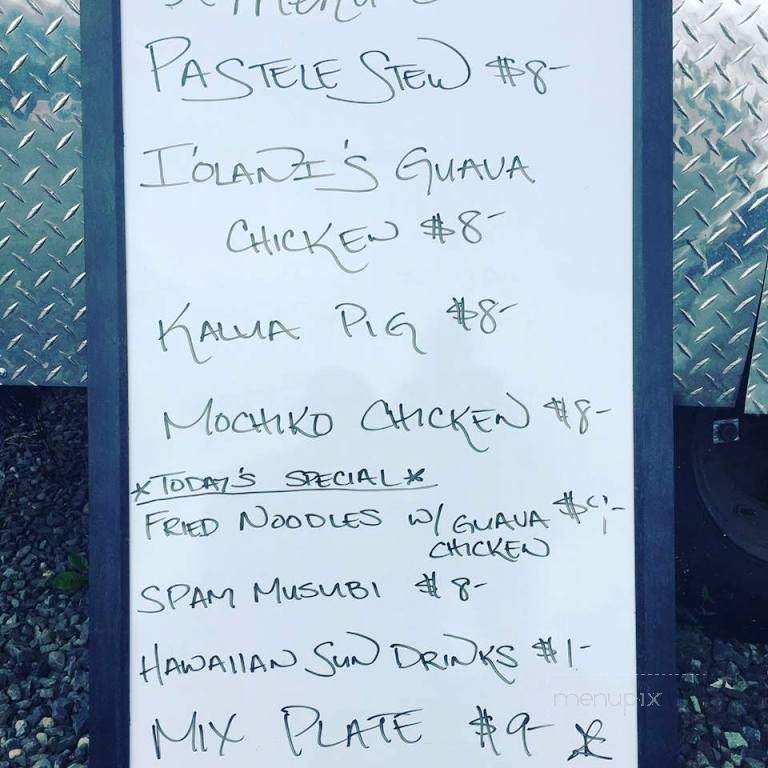 Menu
PASTELE STEW $8-
I'OLANI'S GUAVA
CHICKEN $8-
KALUA PIG $8-
MOCHIKO CHICKEN $8-
*TODAY'S SPECIAL*
FRIED NOODLES W/ GUAVA $9-
CHICKEN
SPAM MUSUBI $8-
HAWAIIAN SUN DRINKS $1-
menupix
MIX PLATE $9-